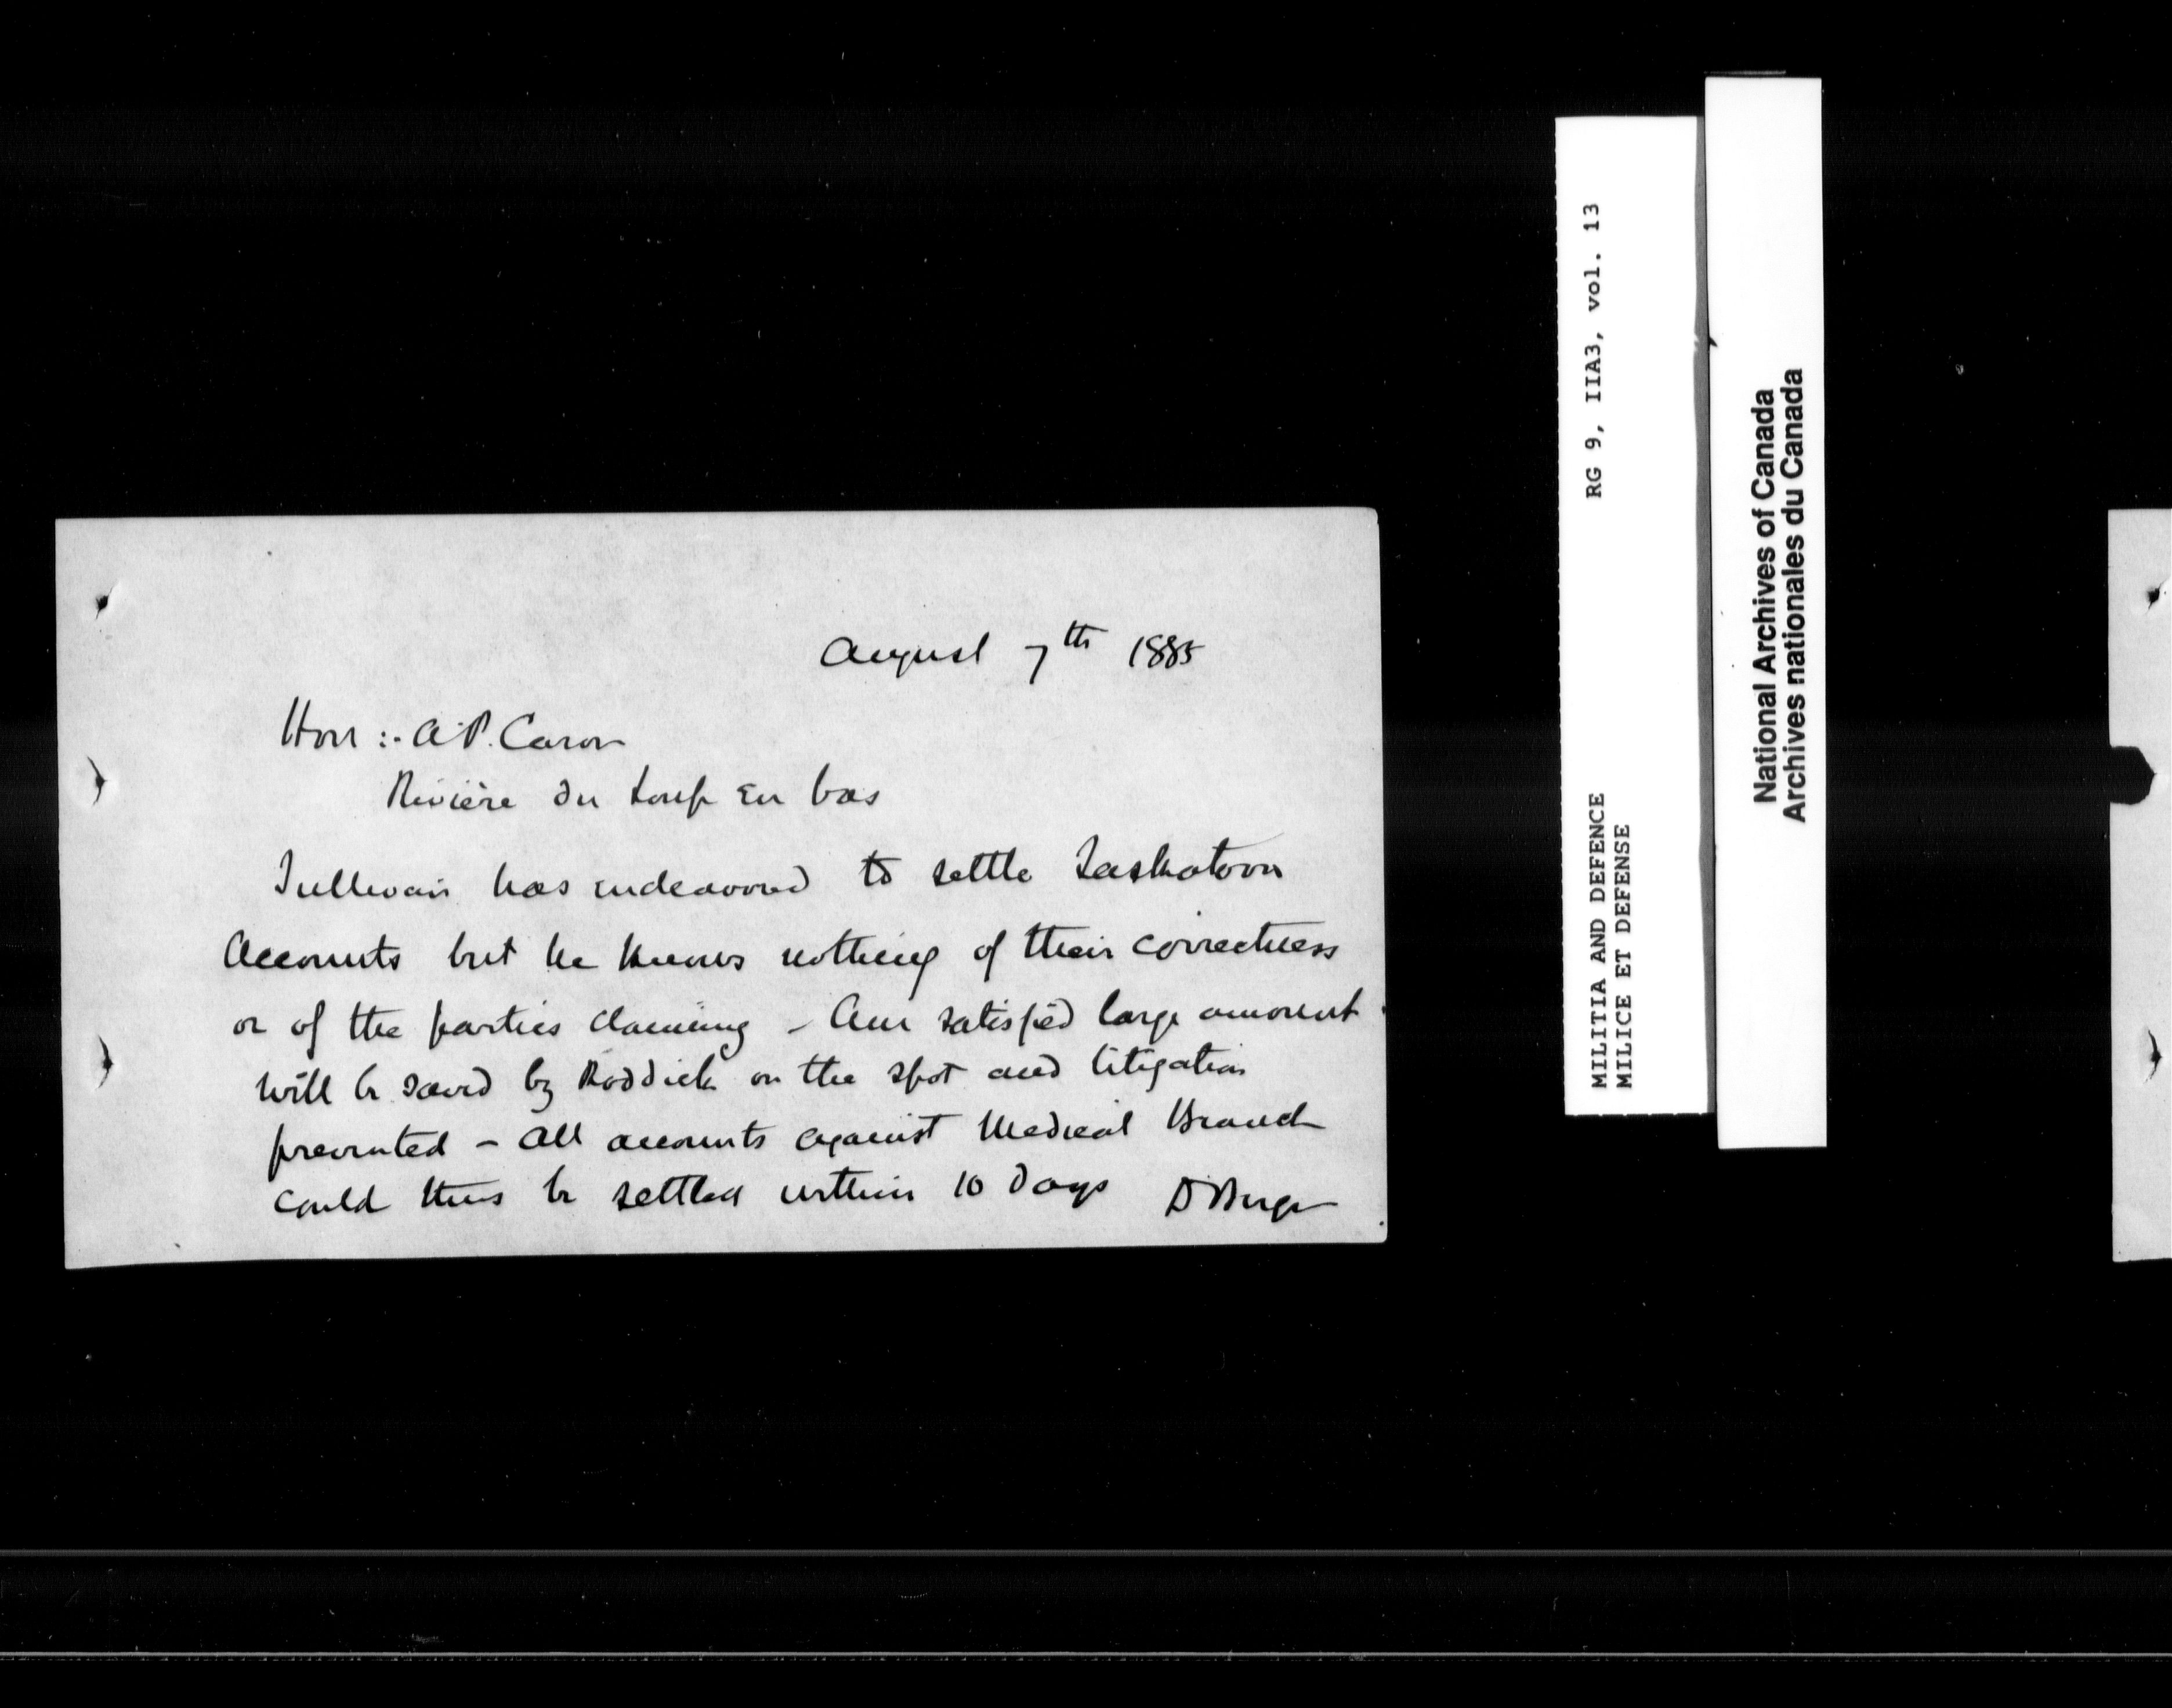 August 7th 1885
Honl :- A.P. Caron
Rivière du Loup en bas
Sullivan has endeavored to settle Saskatoon
Accounts but he knows nothing of their correctness
or of the parties claiming - Am satisfied large amount
will be saved by Roddick on the spot and litigation
prevented - All accounts against Medical Branch
could thus be settled within 10 days D Bergin
RG 9, IIA3, vol. 13
MILITIA AND DEFENCE
MILICE ET DEFENSE
National Archives of Canada
Archives nationales du Canada